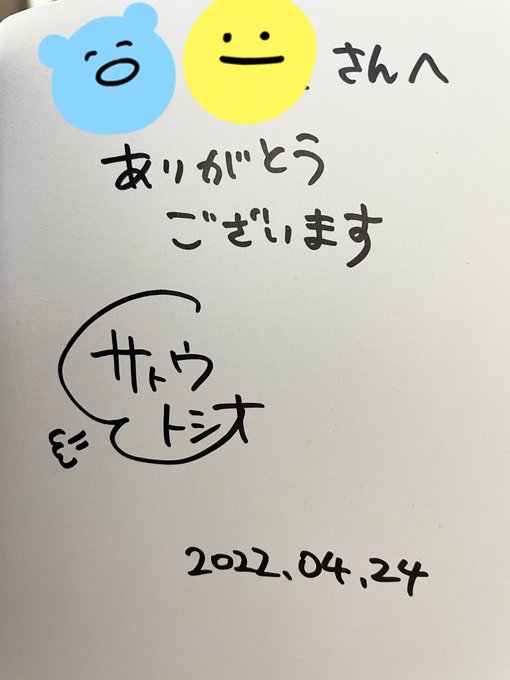 さんへ
ありがとう
ございます
サトウ
トシオ
2022.04.24